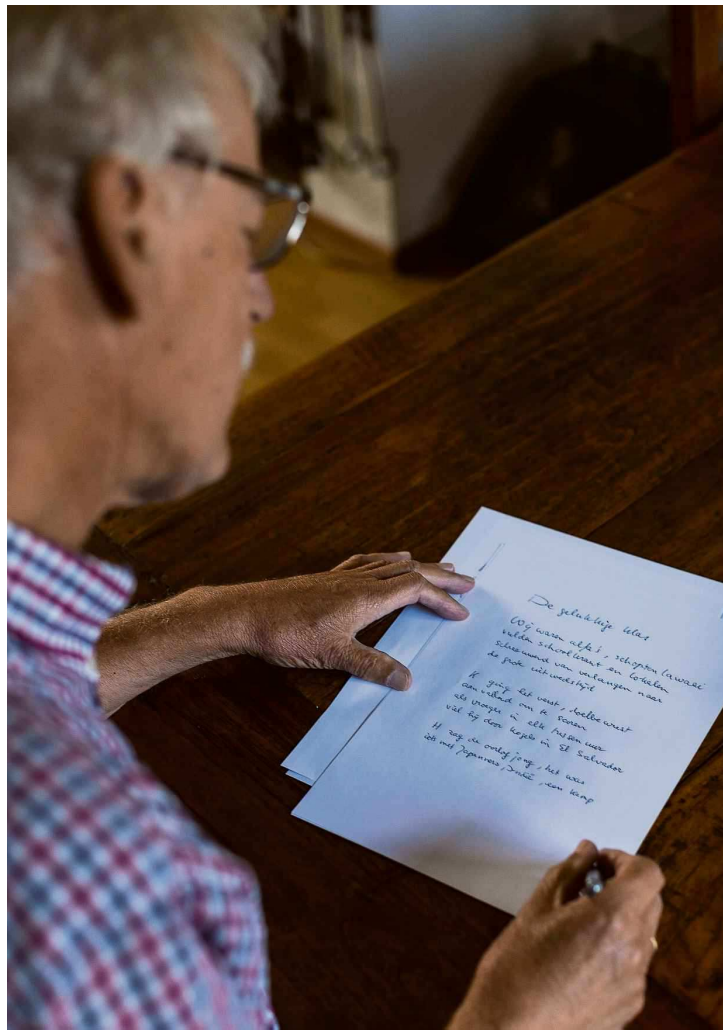 De gelukkige klas
Wij waren alfa's, schopten lawaai
vulden schoolkrant en lokalen
schreeuwend van verlangen naar
de grote uitwedstrijd
H ging het verst, doelbewust
aanvallend om te scoren
als vroeger in elk tussenuur
viel hij door kogels in El Salvador
H zag de oorlog jong, het was
iets met Japanners, Indië, een kamp